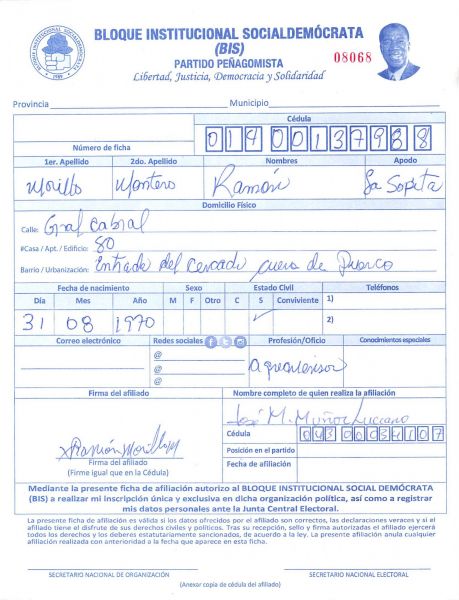 BLOQUE INSTITUCIONAL SOCIALDEMÓCRATA
(BIS)
PARTIDO PEÑAGOMISTA
Libertad, Justicia, Democracia y Solidaridad
08068
Provincia Municipio
Cédula
Número de ficha
1er. Apellido 2do. Apellido Nombres Apodo
Morillo Montero Ramón La Sopita
Domicilio Físico
Calle: Gral Cabral
#Casa / Apt. / Edificio: 80
Barrio / Urbanización: Entrada del cercado cuera de Puerco
Fecha de nacimiento Sexo Estado Civil Teléfonos
Día Mes Año M F Otro C S Conviviente 1)
31 08 1970 ✓ 2)
Correo electrónico Redes sociales Profesión/Oficio Conocimientos especiales
@
@
@
Firma del afiliado Nombre completo de quien realiza la afiliación
José M. Muñoz Luciano
Cédula
Ramón Morillo M
Posición en el partido
Firma del afiliado
(Firme igual que en la Cédula)
Fecha de afiliación
Mediante la presente ficha de afiliación autorizo al BLOQUE INSTITUCIONAL SOCIAL DEMÓCRATA
(BIS) a realizar mi inscripción única y exclusiva en dicha organización política, así como a registrar
mis datos personales ante la Junta Central Electoral.
La presente ficha de afiliación es válida si los datos ofrecidos por el afiliado son correctos, las declaraciones veraces y si el
afiliado tiene el disfrute de sus derechos civiles y políticos. Tras su recepción, sello y firma autorizadas el afiliado ejercerá
todos los derechos y los deberes estatutariamente sancionados, de acuerdo a la ley. La presente afiliación anula cualquier
afiliación realizada con anterioridad a la fecha que aparece en esta ficha.
SECRETARIO NACIONAL DE ORGANIZACIÓN SECRETARIO NACIONAL ELECTORAL
(Anexar copia de cédula del afiliado)